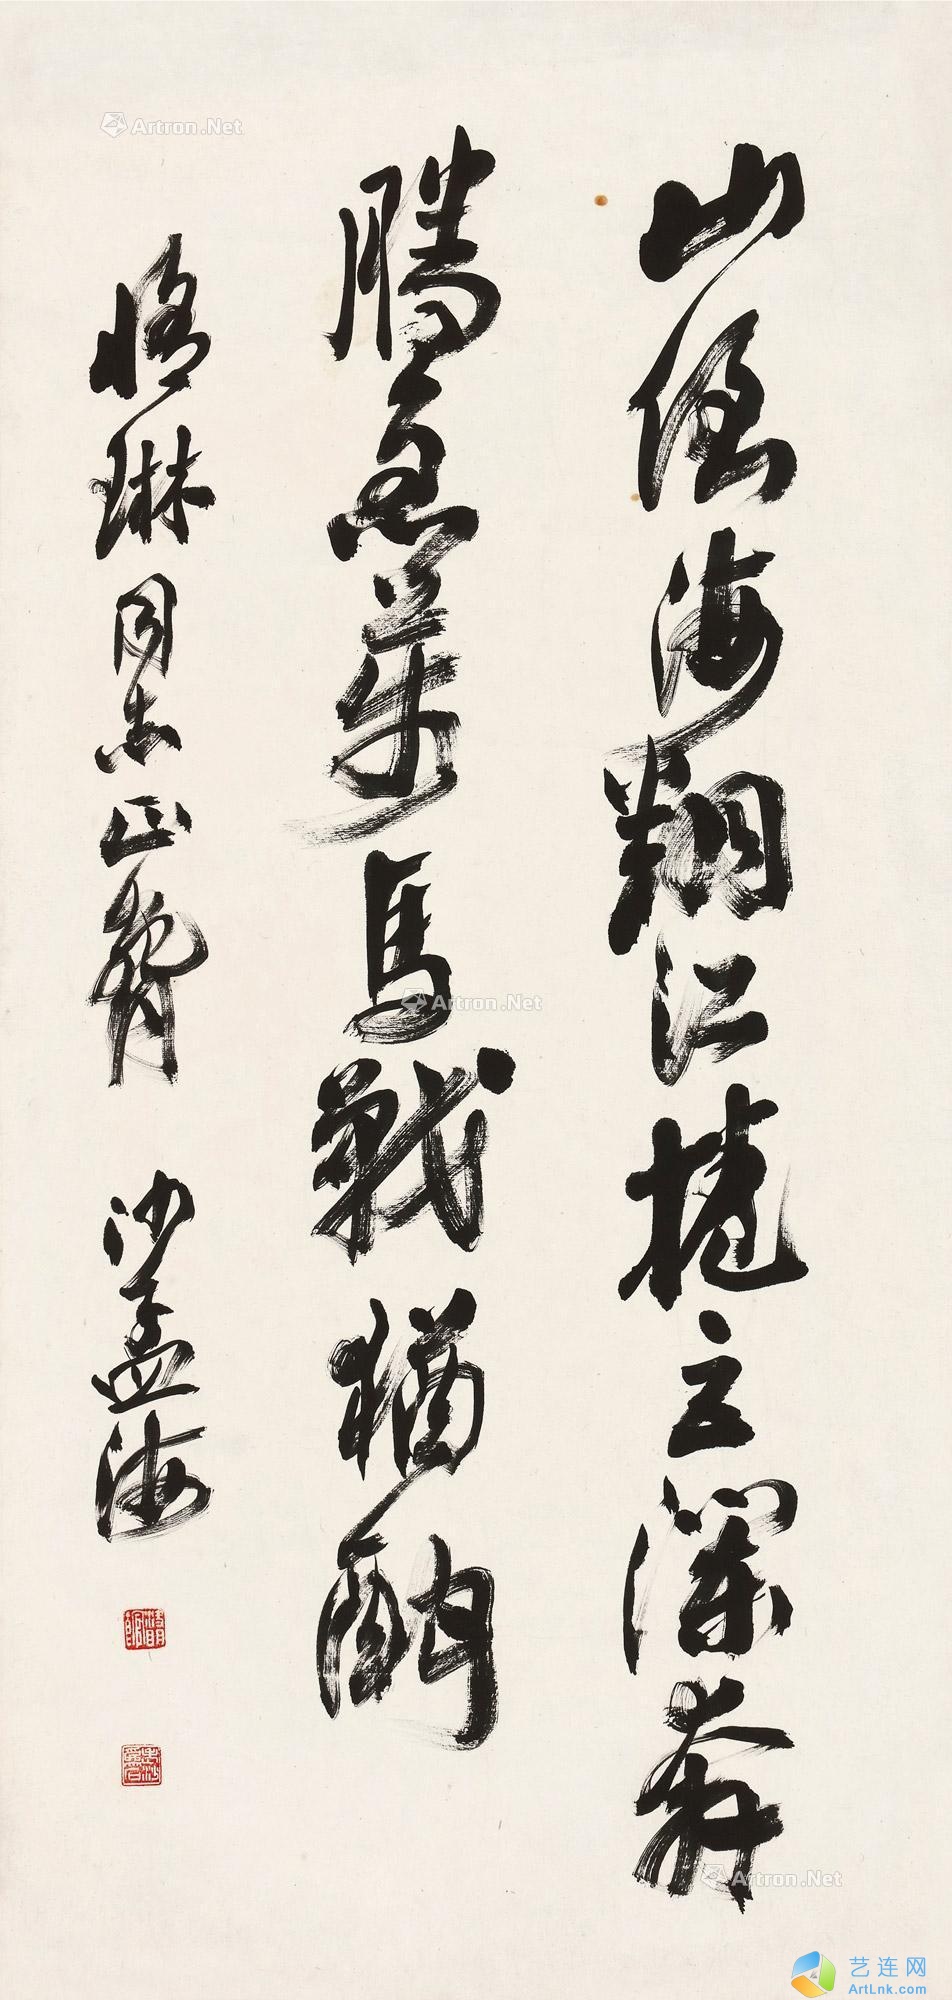 山倒海翻江捲巨瀾奔
騰急萬馬戰猶酣
琳同志正 沙孟海
Artron.Net
Artron.Net
Artron.Net
艺连网
ArtLnk.com